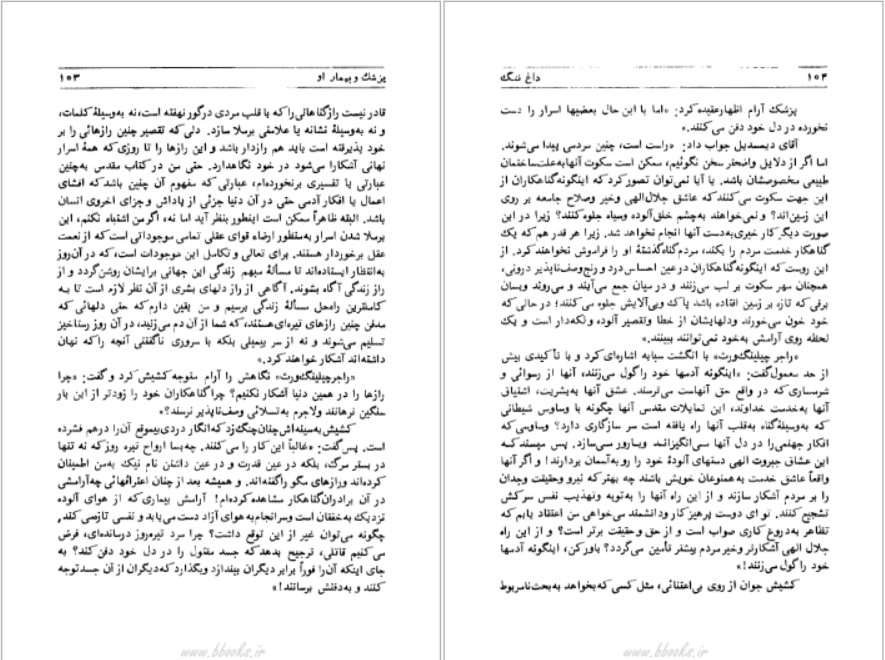 ۱۰۳ پزشک و بیمار او
قادر نیست رازگناهانی را که با قلب مردی درگور نهفته است، نه به‌وسیلهٔ کلمات،
و نه به‌وسیلهٔ نشانه یا علامتی برملا سازد. دلی که تقصیر چنین رازهائی را بر
خود پذیرفته است باید هم رازدار باشد و این رازها را تا روزی که همهٔ اسرار
نهانی آشکارا می‌شود در خود نگاهدارد. حتی من در کتاب مقدس به‌چنین
عبارتی یا تفسیری برنخورده‌ام، عبارتی که مفهوم آن چنین باشد که افشای
اعمال یا افکار آدمی حتی در آن دنیا جزئی از پاداش و جزای اخروی انسان
باشد. البته ظاهراً ممکن است اینطور بنظر آید اما نه، اگر من اشتباه نکنم، این
برملا شدن اسرار به‌منظور ارضاء قوای عقلی تمامی موجوداتی است که از نعمت
عقل برخوردار هستند. برای تعالی و تکامل این موجودات است، که در آن روز
به‌انتظار ایستاده‌اند تا مسألهٔ مبهم زندگی این جهانی برایشان روشن گردد و از
راز زندگی آگاه بشوند. آگاهی از راز دلهای بشری از آن نظر لازم است تا به
کاملترین راه‌حل مسألهٔ زندگی برسیم و من یقین دارم که حتی دلهائی که
مدفن چنین رازهای تیره‌ای هستند، که شما از آن دم می‌زنید، در آن روز رستاخیز
تسلیم می‌شوند و نه از سر بیمیلی بلکه با سروری ناگفتنی آنچه را که نهان
داشته‌اند آشکار خواهند کرد.»
«راجر چیلینگ‌ورث» نگاهش را آرام متوجه کشیش کرد و گفت: «چرا
رازها را در همین دنیا آشکار نکنیم؟ چرا گناهکاران خود را زودتر از این بار
سنگین نرهانند و لاجرم به‌تسلائی وصف‌ناپذیر نرسند؟»
کشیش به‌سینه‌اش چنان چنگ زد که انگار دردی بیموقع آن را درهم فشرده
است. پس گفت: «غالباً این کار را می‌کنند. چه‌بسا ارواح تیره روز که نه تنها
در بستر مرگ، بلکه در عین قدرت و در عین داشتن نام نیک به‌من اطمینان
کرده‌اند و رازهای مگو را گفته‌اند. و همیشه بعد از چنان اعترافهائی چه آرامشی
در آن برادران گناهکار مشاهده کرده‌ام! آرامش بیماری که از هوای آلوده
نزدیک به‌خفقان است و سرانجام به‌هوای آزاد دست می‌یابد و نفسی تازه می‌کند.
چگونه می‌توان غیر از این توقع داشت؟ چرا مرد تیره‌روز درمانده‌ای، فرض
می‌کنیم قاتلی، ترجیح بدهد که جسد مقتول را در دل خود دفن کند؟ به
جای اینکه آن را فوراً برابر دیگران بیندازد و بگذارد که دیگران از آن جسد توجه
کنند و به‌دفنش برسانند!»
www.bbooks.ir
۱۰۴ داغ ننگ
پزشک آرام اظهارعقیده کرد: «اما با این حال بعضیها اسرار را دست
نخورده در دل خود دفن می‌کنند.»
آقای دیمسدیل جواب داد: «راست است، چنین مردمی پیدا می‌شوند.
اما اگر از دلایل واضحتر سخن نگوئیم، ممکن است سکوت آنها به‌علت ساختمان
طبیعی مخصوصشان باشد. یا آیا نمی‌توان تصور کرد که اینگونه گناهکاران از
این جهت سکوت می‌کنند که عاشق جلال الهی و خیر و صلاح جامعه بر روی
این زمین‌اند؟ و نمی‌خواهند به‌چشم خلق آلوده و سیاه جلوه کنند؟ زیرا در این
صورت دیگر کار خیری به‌دست آنها انجام نخواهد شد. زیرا هر قدر هم که یک
گناهکار خدمت مردم را بکند، مردم گناه گذشتهٔ او را فراموش نخواهند کرد. از
این روست که اینگونه گناهکاران در عین احساس درد و رنج وصف‌ناپذیر درونی،
همچنان مهر سکوت بر لب می‌زنند و در میان جمع می‌آیند و می‌روند و بسان
برفی که تازه بر زمین افتاده باشد پاک و بی‌آلایش جلوه می‌کنند؛ در حالی که
خود خون می‌خورند و دلهایشان از خطا و تقصیر آلوده و لکه‌دار است و یک
لحظه روی آرامش به‌خود نمی‌توانند ببینند.»
«راجر چیلینگ‌ورث» با انگشت سبابه اشاره‌ای کرد و با تأکیدی بیش
از حد معمول گفت: «اینگونه آدمها خود را گول می‌زنند، آنها از رسوائی و
شرمساری که در واقع حق آنهاست می‌ترسند. عشق آنها به‌بشریت، اشتیاق
آنها به‌خدمت خداوند، این تمایلات مقدس آنها چگونه با وساوس شیطانی
که به‌وسیلهٔ گناه به‌قلب آنها راه یافته است سر سازگاری دارد؟ وساوسی که
افکار جهنمی را در دل آنها می‌انگیزاند و بارور می‌سازد. پس مپسند که
این عشاق جبروت الهی دستهای آلودهٔ خود را رو به‌آسمان بردارند! و اگر آنها
واقعاً عاشق خدمت به‌همنوعان خویش باشند چه بهتر که نیرو و حقیقت وجدان
را بر مردم آشکار سازند و از این راه آنها را به‌توبه و تهذیب نفس سرکش
تشجیع کنند. تو ای دوست پرهیزکار و دانشمند می‌خواهی من اعتقاد یابم که
تظاهر به‌دروغ کاری صواب است و از حق و حقیقت برتر است؟ و از این راه
جلال الهی آشکارتر و خیر مردم بیشتر تأمین می‌گردد؟ باور کن، اینگونه آدمها
خود را گول می‌زنند!»
کشیش جوان از روی بی‌اعتنائی، مثل کسی که بخواهد به‌بحث نامربوط
www.bbooks.ir